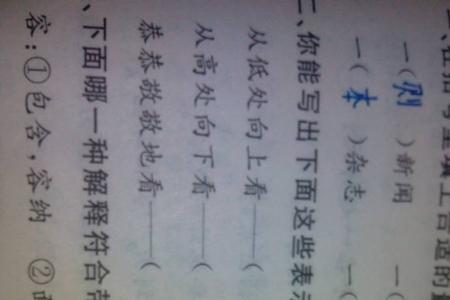 一、在括号里填上合适的
一(则)新闻 一(
一(本)杂志 一(
二、你能写出下面这些表示
从低处向上看——(
从高处向下看——(
恭恭敬敬地看——(
、下面哪一种解释符合
容:①包含,容纳 ②